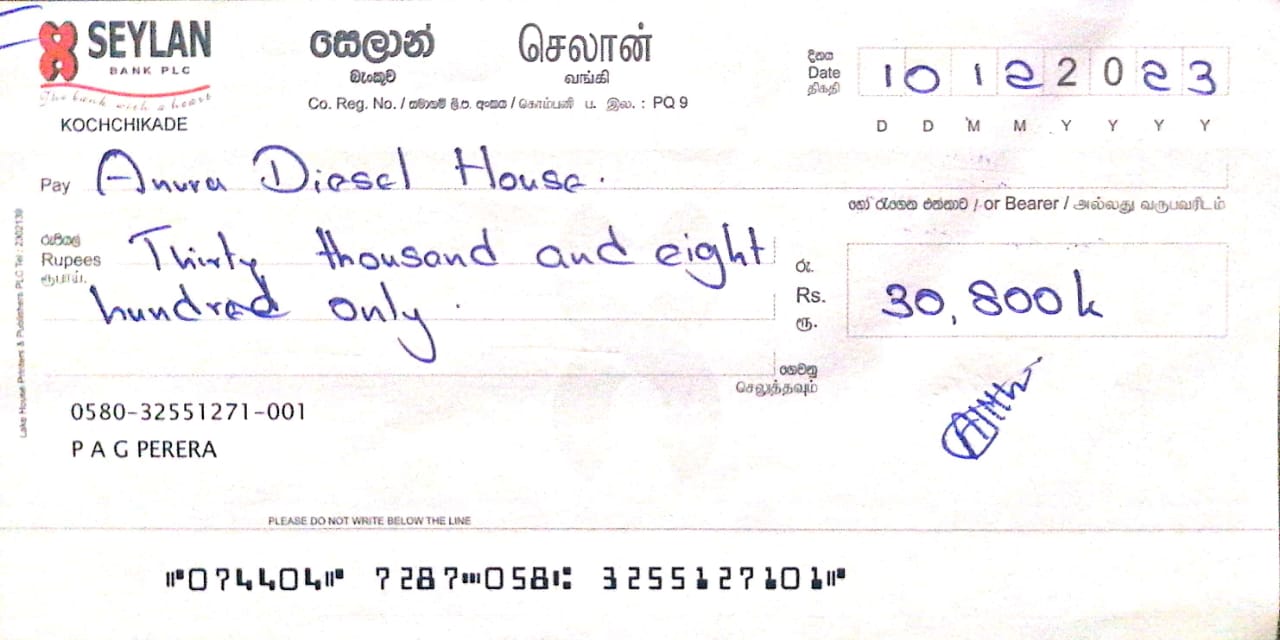 SEYLAN
BANK PLC
The bank with a heart
KOCHCHIKADE
සෙලාන්
බැංකුව
செலான்
வங்கி
Co. Reg. No. / සමාගම් ලි.ප. අංකය / கொம்பனி ப. இல. : PQ 9
දිනය
Date
திகதி
10 12 2023
D D M M Y Y Y Y
Pay Anura Diesel House.
හෝ රැගෙන එන්නාට / or Bearer / அல்லது வருபவரிடம்
රුපියල්
Rupees
ரூபாய்.
Thirty thousand and eight
hundred only.
රු.
Rs.
ரூ.
30,800
ගෙවනු
செலுத்தவும்
0580-32551271-001
P A G PERERA
Lake House Printers & Publishers PLC Tel : 2302139
PLEASE DO NOT WRITE BELOW THE LINE
⑈074404⑈ 7287⑉058⑆ 3255127101⑈